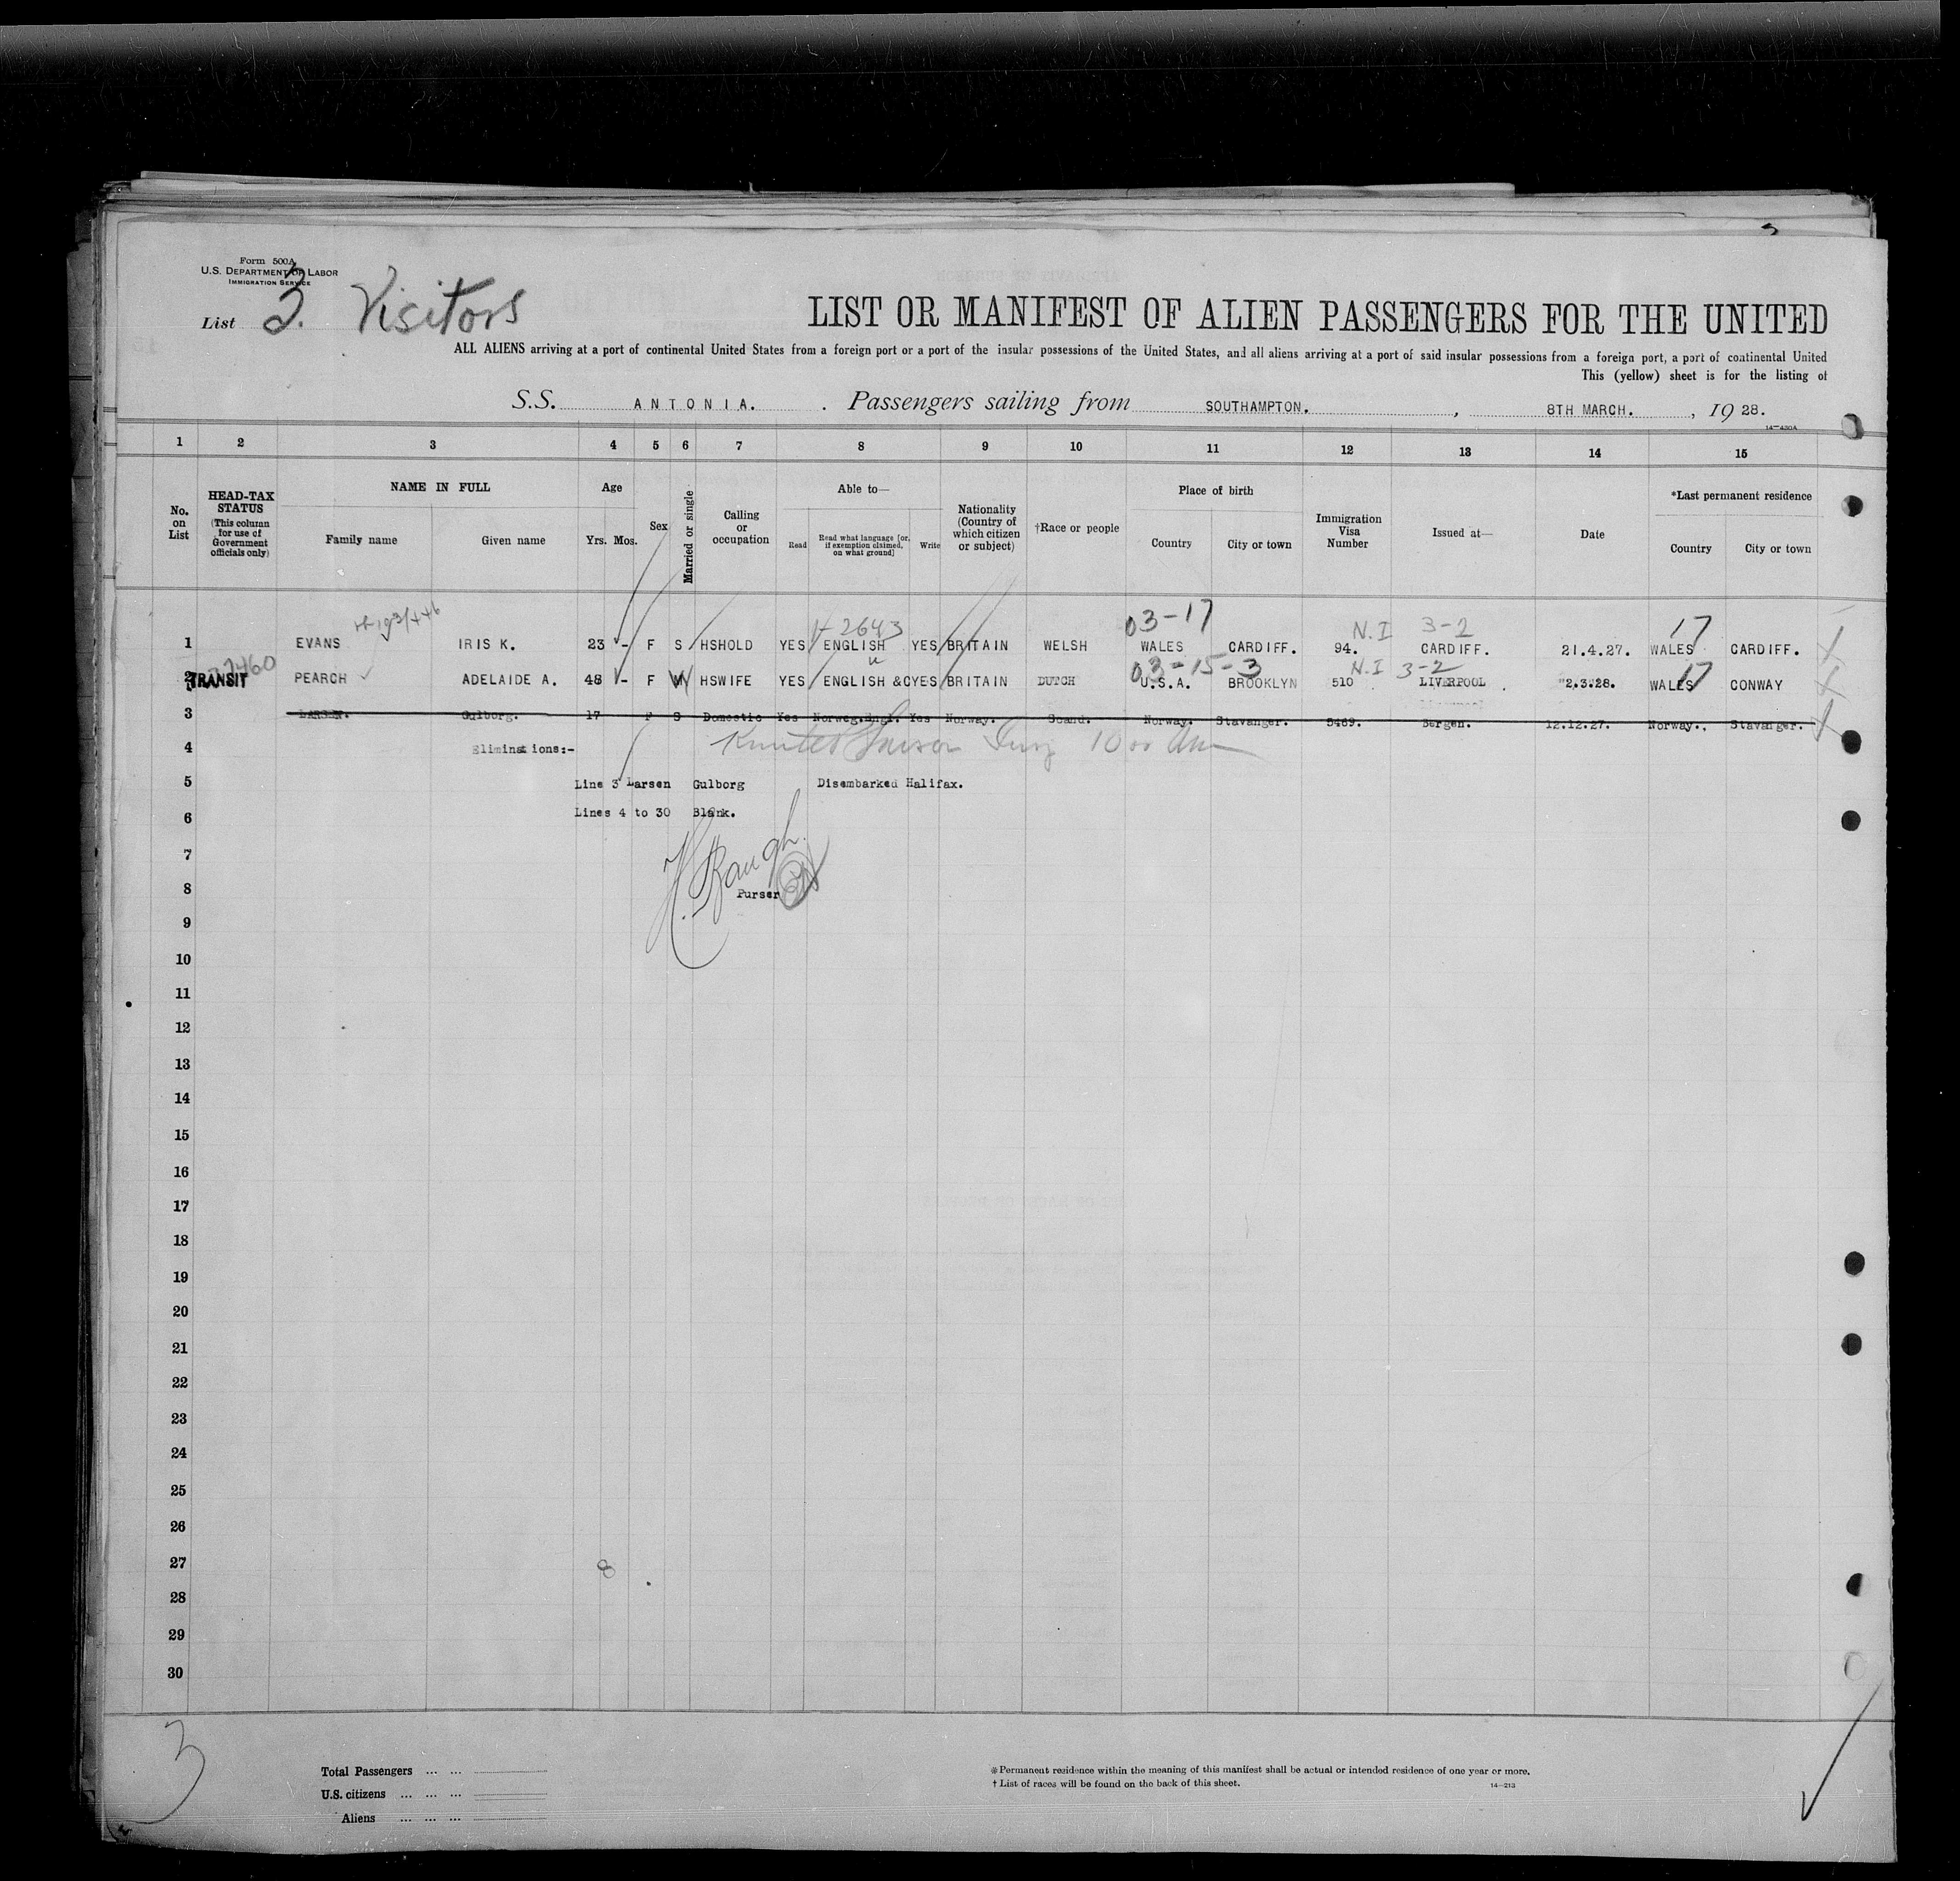 Form 500A
U.S. DEPARTMENT OF LABOR
IMMIGRATION SERVICE
List 3. Visitors
LIST OR MANIFEST OF ALIEN PASSENGERS FOR THE UNITED
ALL ALIENS arriving at a port of continental United States from a foreign port or a port of the insular possessions of the United States, and all aliens arriving at a port of said insular possessions from a foreign port, a port of continental United
This (yellow) sheet is for the listing of
S.S. ANTONIA. Passengers sailing from SOUTHAMPTON. , 8TH MARCH. , 1928.
14-430A
1 2 3 4 5 6 7 8 9 10 11 12 13 14 15
No. on List
HEAD-TAX STATUS (This column for use of Government officials only)
NAME IN FULL
Family name Given name
Age
Yrs. Mos.
Sex
Married or single
Calling or occupation
Able to—
Read Read what language [or, if exemption claimed, on what ground] Write
Nationality (Country of which citizen or subject)
†Race or people
Place of birth
Country City or town
Immigration Visa Number
Issued at—
Date
*Last permanent residence
Country City or town
03-17 N.I 3-2 17
1 EVANS IRIS K. 23 - F S HSHOLD YES ENGLISH YES BRITAIN WELSH WALES CARDIFF. 94. CARDIFF. 21.4.27. WALES CARDIFF.
03-15-3 N.I 3-2 17
2 TRANSIT PEARCH ADELAIDE A. 48 - F M HSWIFE YES ENGLISH &C YES BRITAIN DUTCH U.S.A. BROOKLYN 510 LIVERPOOL 2.3.28. WALES CONWAY
3 LARSEN. Gulborg. 17 F S Domestic Yes Norweg.Engl. Yes Norway. Scand. Norway. Stavanger. 5469. Bergen. 12.12.27. Norway., Stavanger.
4 Eliminations:-
5 Line 3 Larsen Gulborg Disembarked Halifax.
6 Lines 4 to 30 Blank.
7
8 Purser
9
10
11
12
13
14
15
16
17
18
19
20
21
22
23
24
25
26
27
28
29
30
3
Total Passengers ... ...
U.S. citizens ... ... ...
Aliens ... ... ...
*Permanent residence within the meaning of this manifest shall be actual or intended residence of one year or more.
† List of races will be found on the back of this sheet.
14-213